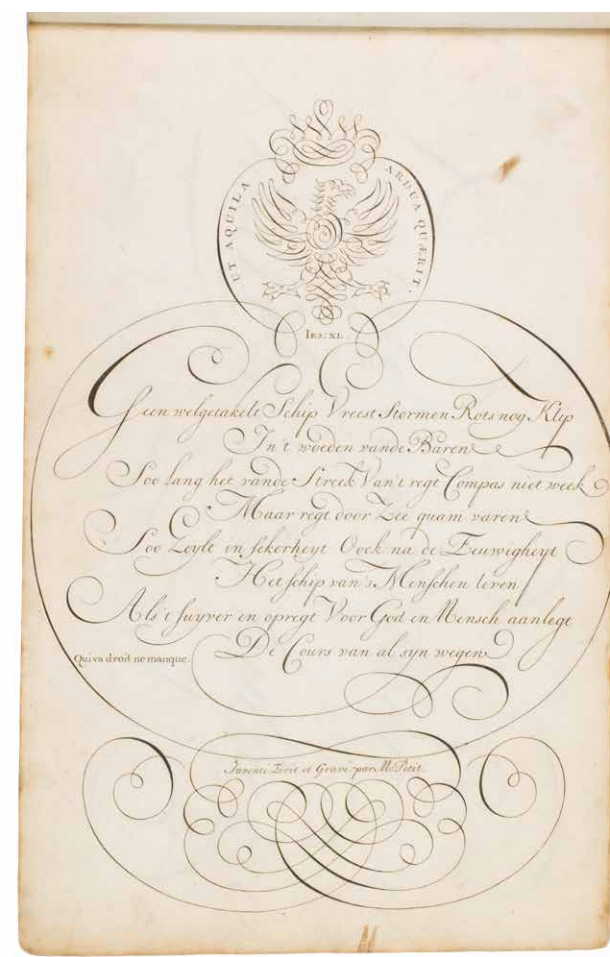 UT AQUILA ARDUA QUÆRIT.
IES: XL
Geen welgetakelt Schip Vreest Stormen Rots nog Klip
In't woeden vande Baren
Soo lang het vande Streek Van't regt Compas niet week
Maar regt door Zee quam varen
Soo Zeylt in sekerheyt Oock na de Eeuwigheyt
Het schip van's Menschen leven
Als't suyver en opregt Voor God en Mensch aanlegt
De Cours van al syn wegen
Qui va droit ne manque
Inventé Ecrit et Gravé par M: Petit